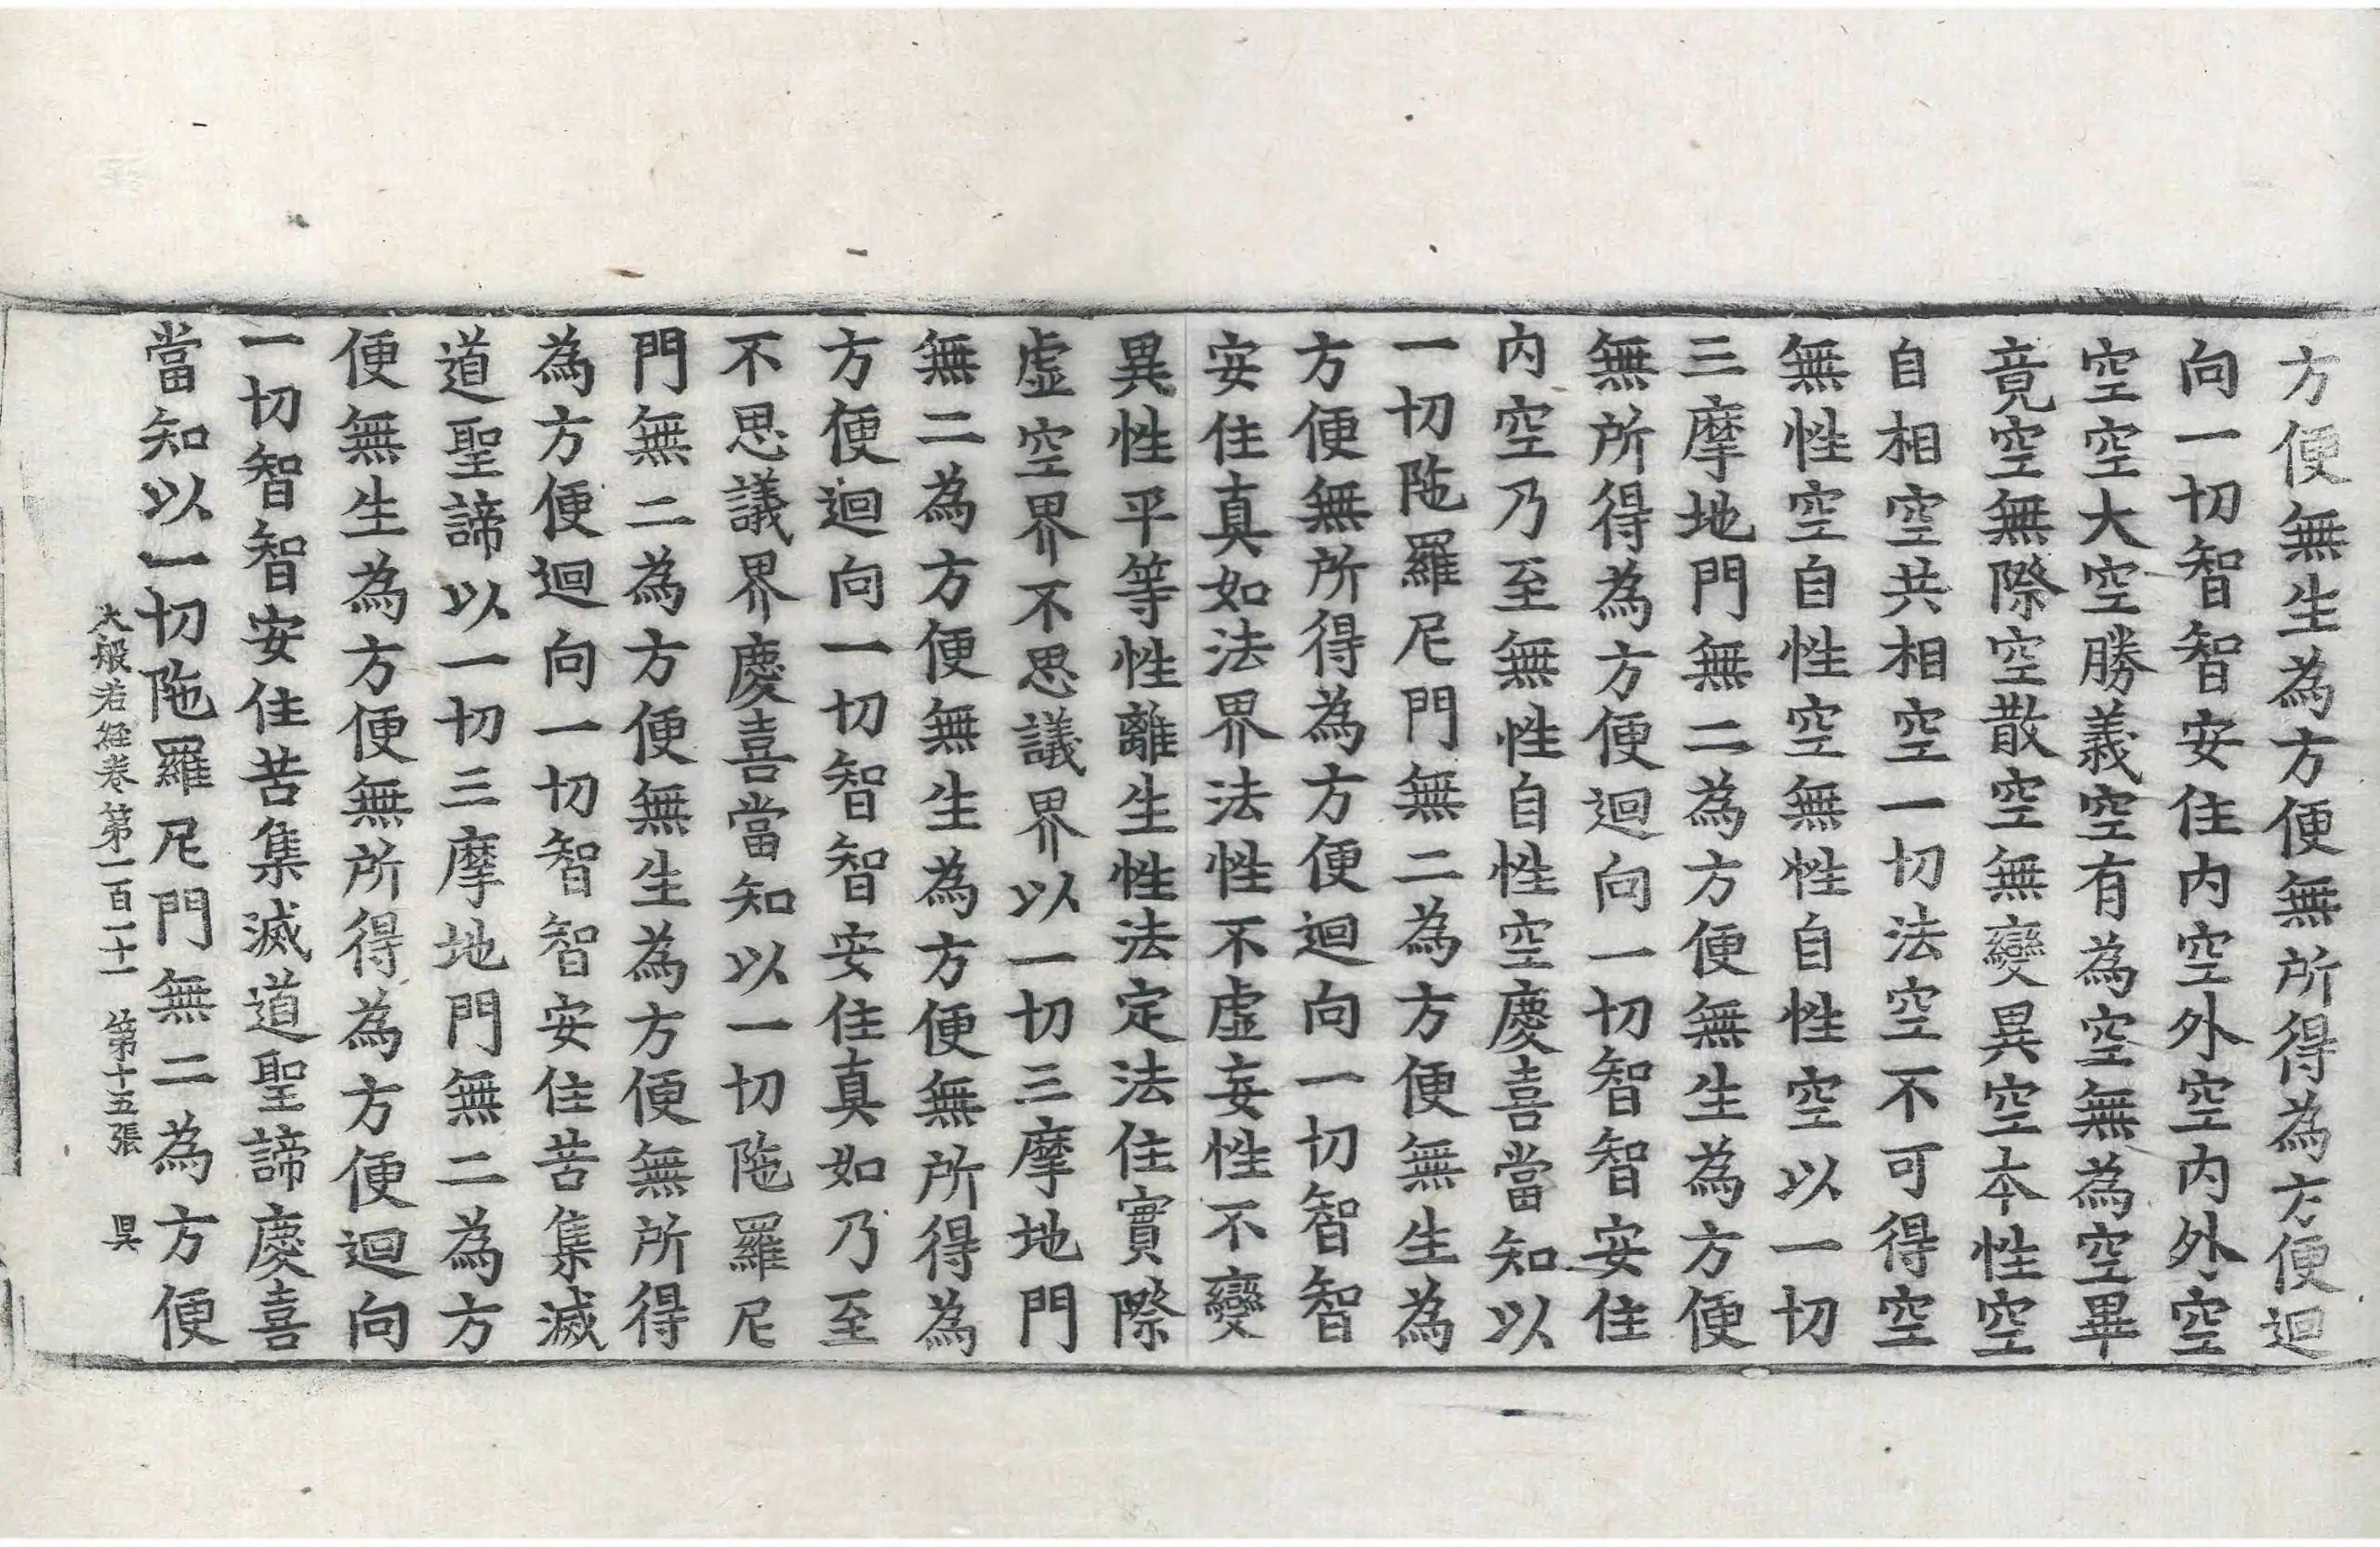 方便無生為方便無所得為方便迴
向一切智智安住内空外空内外空
空空大空勝義空有為空無為空畢
竟空無際空散空無變異空本性空
自相空共相空一切法空不可得空
無性空自性空無性自性空以一切
三摩地門無二為方便無生為方便
無所得為方便迴向一切智智安住
内空乃至無性自性空慶喜當知以
一切陁羅尼門無二為方便無生為
方便無所得為方便迴向一切智智
安住真如法界法性不虛妄性不變
異性平等性離生性法定法住實際
虛空界不思議界以一切三摩地門
無二為方便無生為方便無所得為
方便迴向一切智智安住真如乃至
不思議界慶喜當知以一切陁羅尼
門無二為方便無生為方便無所得
為方便迴向一切智智安住苦集滅
道聖諦以一切三摩地門無二為方
便無生為方便無所得為方便迴向
一切智智安住苦集滅道聖諦慶喜
當知以一切陁羅尼門無二為方便
大般若經卷第一百二十一 第十五張 昃